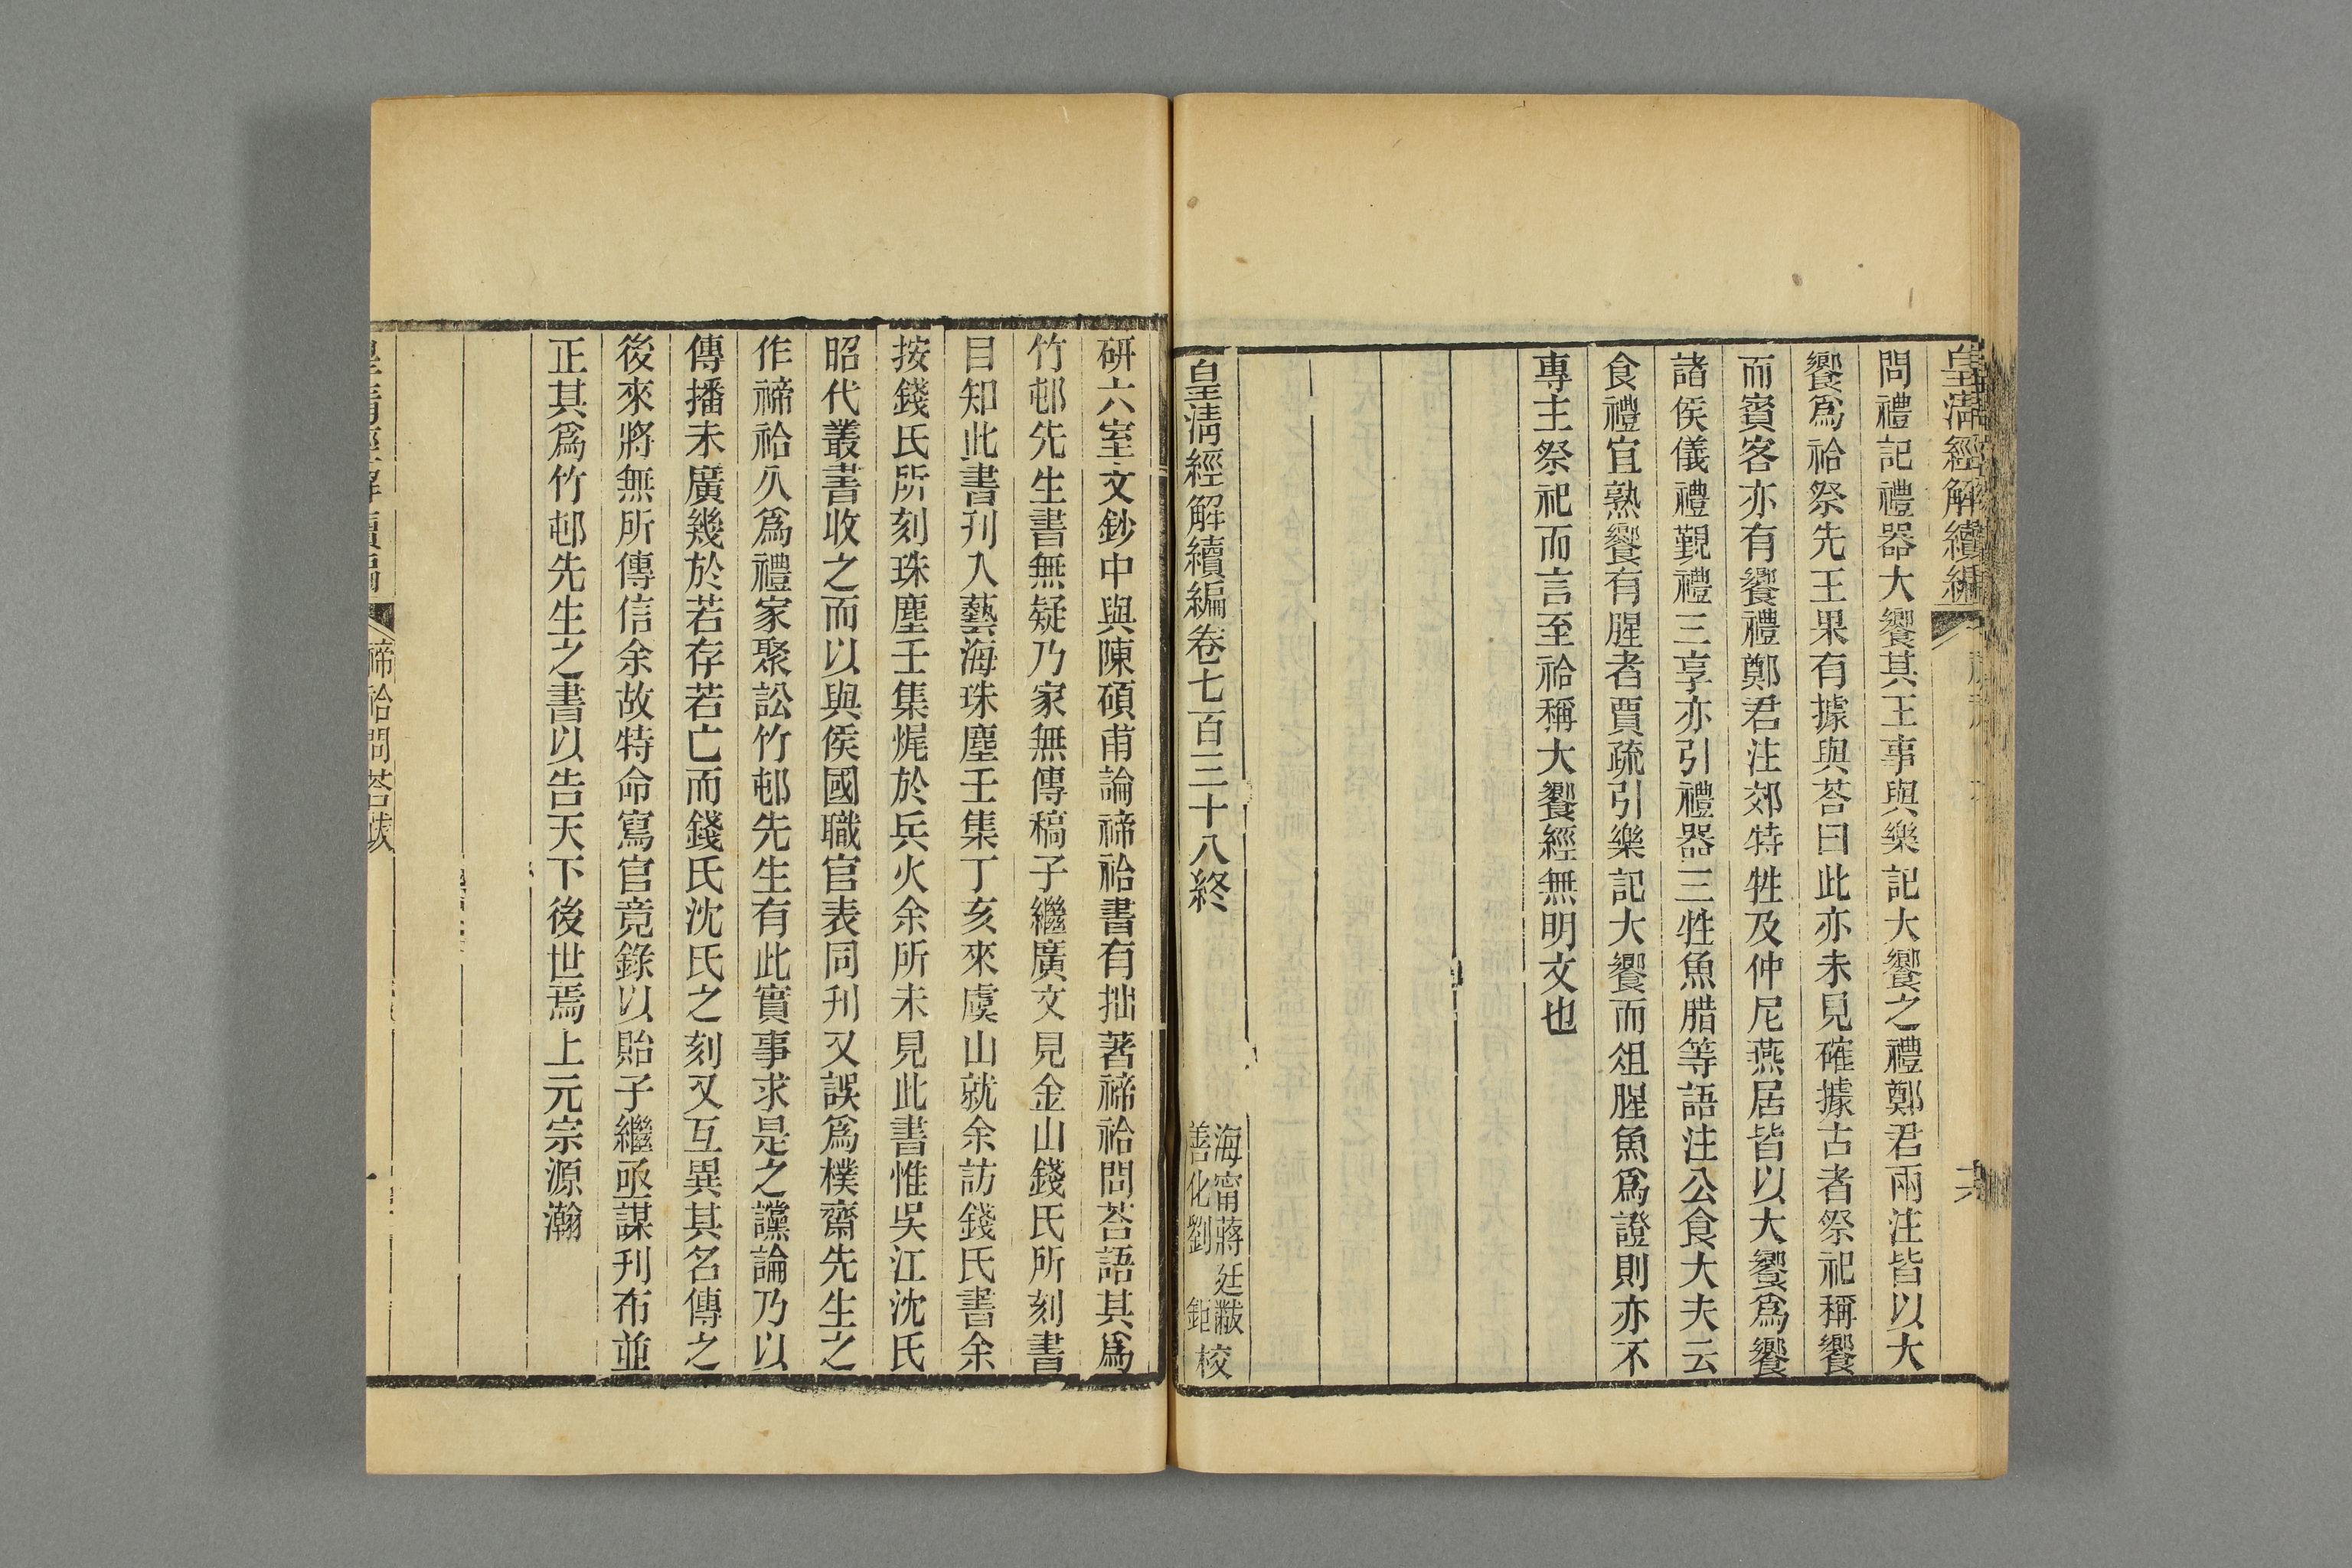 皇清經解續編
問禮記禮器大饗其王事與樂記大饗之禮鄭君兩注皆以大
饗爲祫祭先王果有據與荅曰此亦未見確據古者祭祀稱饗
而賓客亦有饗禮鄭君注郊特牲及仲尼燕居皆以大饗爲饗
諸侯儀禮覲禮三享亦引禮器三牲魚腊等語注公食大夫云
食禮宜熟饗有腥者賈疏引樂記大饗而俎腥魚爲證則亦不
專主祭祀而言至祫稱大饗經無明文也
皇淸經解續編卷七百三十八終
海甯蔣廷黻
善化劉鉅校
研六室文鈔中與陳碩甫論禘祫書有拙著禘祫問荅語其爲
竹邨先生書無疑乃家無傳稿子繼廣文見金山錢氏所刻書
目知此書刊入藝海珠塵壬集丁亥來虞山就余訪錢氏書余
按錢氏所刻珠塵壬集燬於兵火余所未見此書惟吳江沈氏
昭代叢書收之而以與侯國職官表同刊又誤爲樸齋先生之
作禘祫久爲禮家聚訟竹邨先生有此實事求是之讜論乃以
傳播未廣幾於若存若亡而錢氏沈氏之刻又互異其名傳之
後來將無所傳信余故特命寫官竟錄以貽子繼亟謀刊布並
正其爲竹邨先生之書以告天下後世焉上元宗源瀚
皇清經解續編
禘祫問荅跋
一